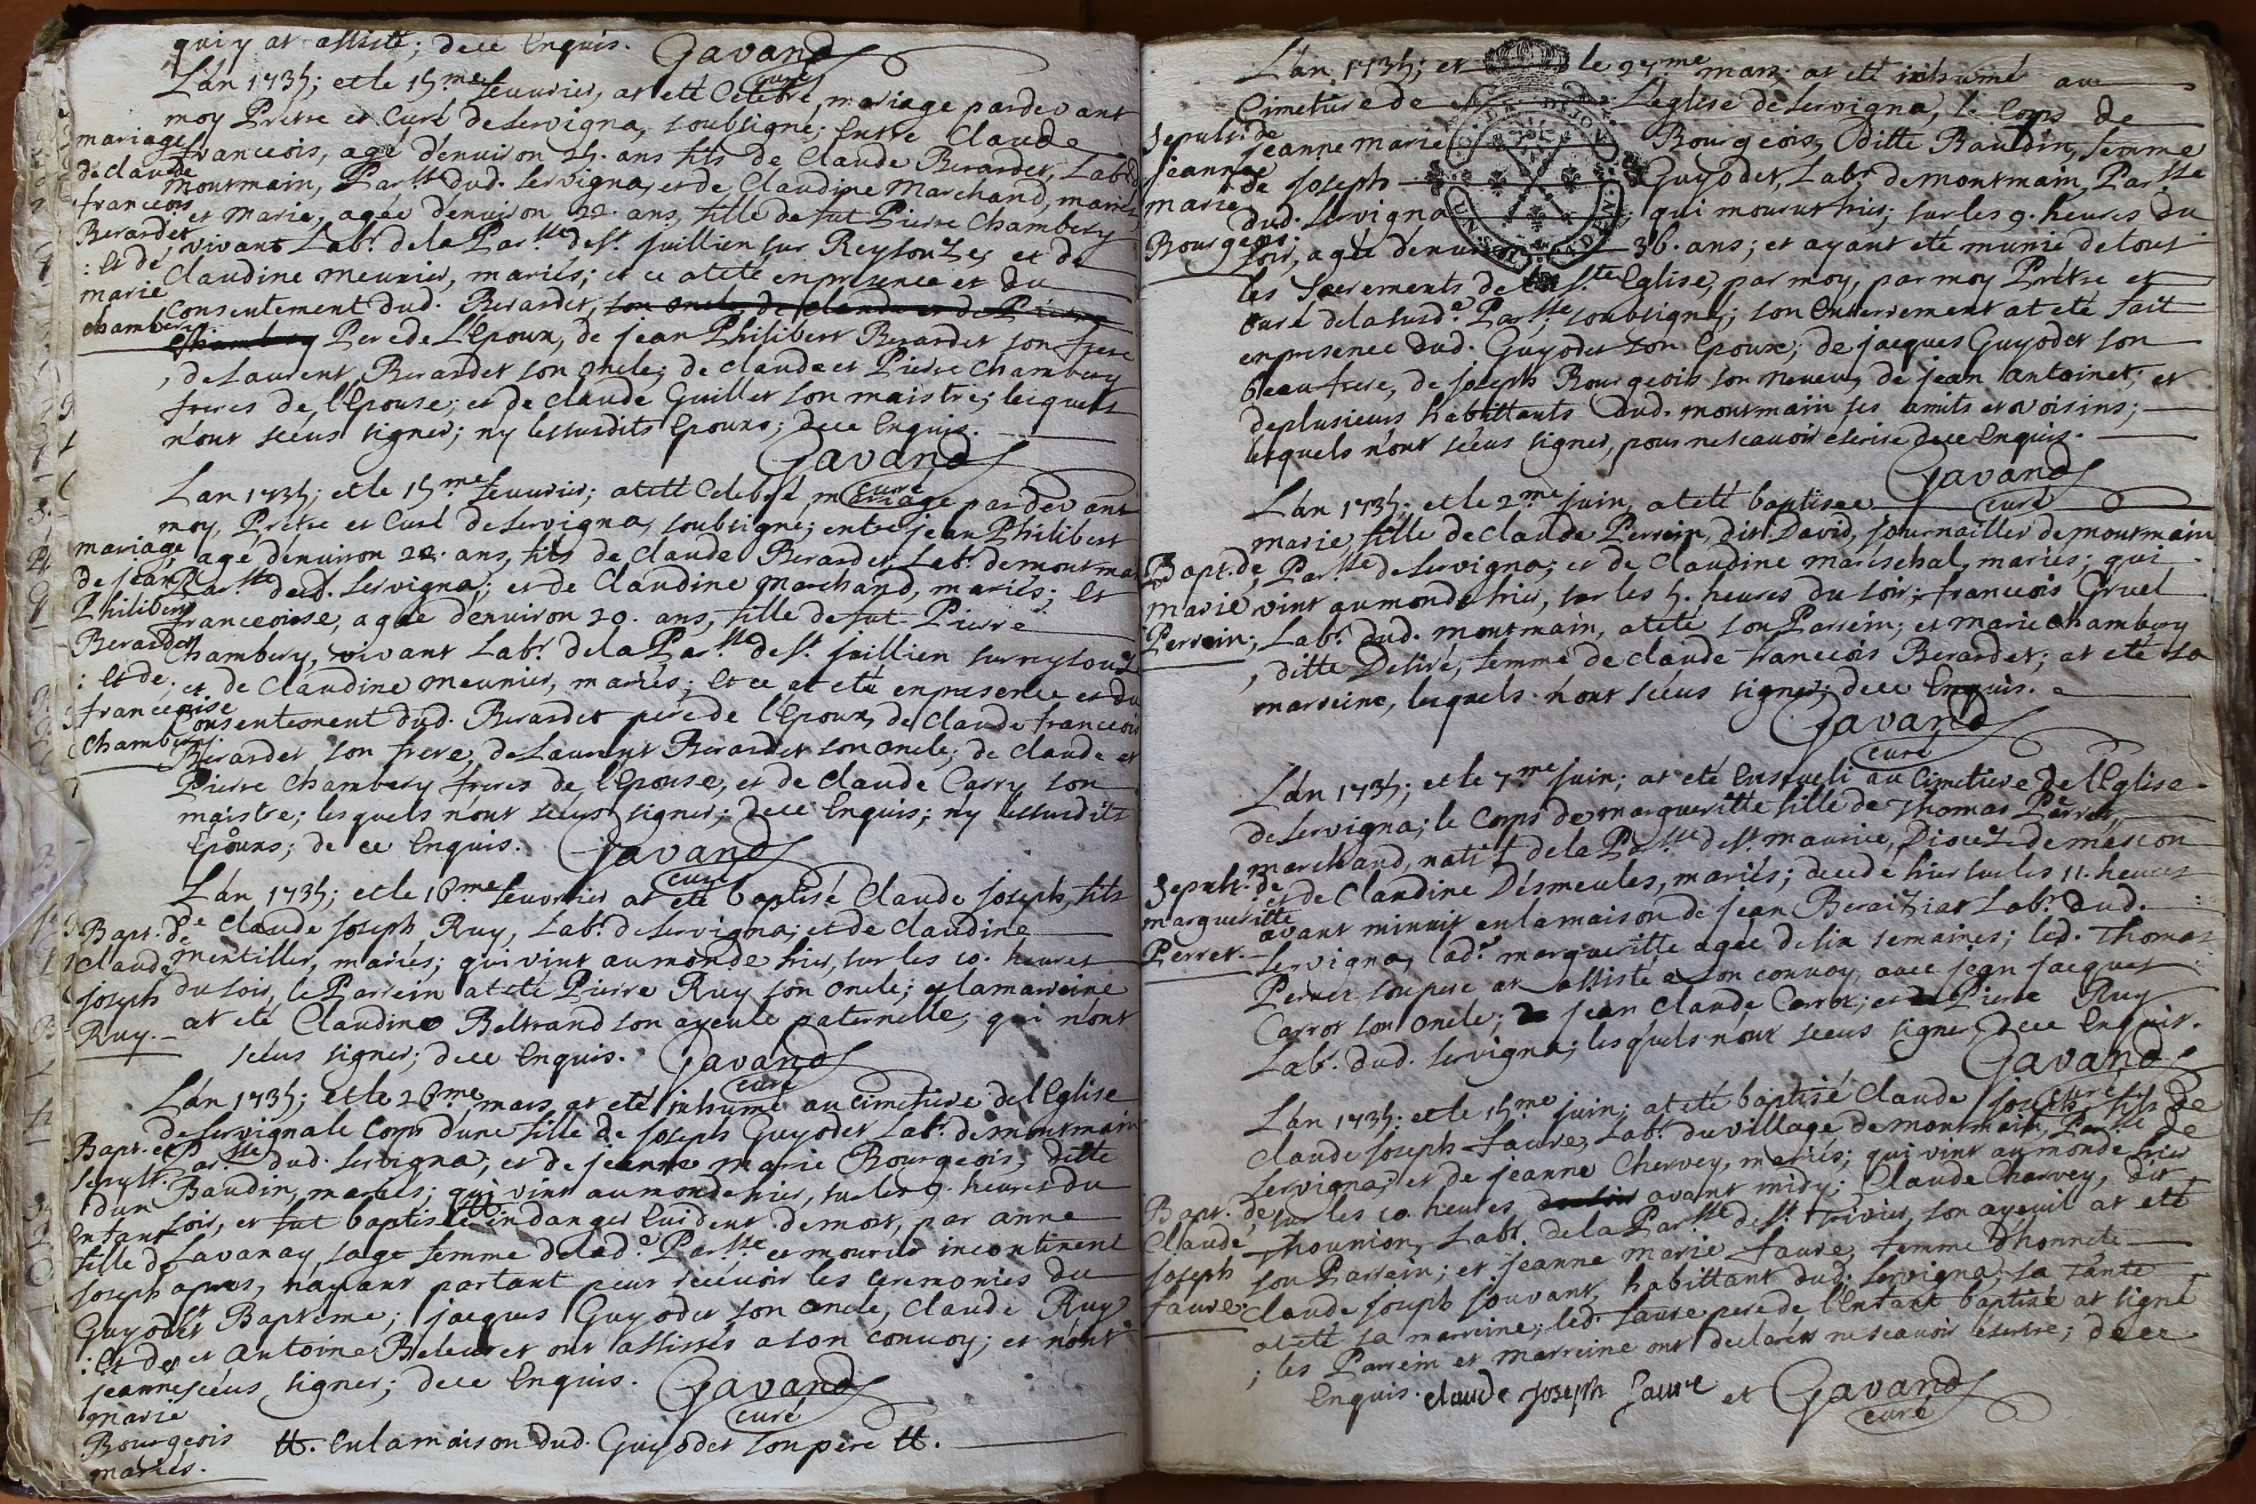 qui y at assisté; de ce Enquis. Gavand
curé
L'an 1735; et le 15.me feuvrier, at eté Celebré, mariage pardevant
moy Prétre et Curé de Servigna, soubsigné; Entre Claude
mariage
de claude
franceois
Berardet
: et de
marie
chambery.
franceois, agé d'enuiron 25. ans fils de Claude Berardet, Lab.r d
montmain, Par.sse dud. Servigna, et de Claudine Marchand, mariés
et Marie, agée d'enuiron 22. ans, fille de fut Pierre Chambery
, vivant Lab.r de la Par.sse de S.t juillien sur Reysouze, et de
Claudine meunier, mariés; et ce at eté en presence et du
Consentement dud. Berardet, son oncle, de claude et de Pierre
Chambery Pere de L'Epoux, de jean Philibert Berardet son frere
, de Laurent Berardet son oncle; de claude et Pierre Chambery
freres de l'Epouse; et de claude Guillet son maistre; lesquels
n'ont scéus signer; ny les susdits Epoux; de ce Enquis.
Gavand
curé
L'an 1735; et le 15.me feuvrier; at eté Celebré, mariage pardevant
moy, Prétre et Curé de Servigna, soubsigné; entre jean Philibert
mariage
de jean
Philibert
Berardet
: et de
franceoise
Chambery.
, agé d'enuiron 22. ans, fils de Claude Berardet, Lab.r de montmain
Par.sse dud. Servigna; et de Claudine marchand, mariés; Et
franceoise, agée d'enuiron 20. ans, fille de fut Pierre
Chambery, vivant Lab.r de la Par.sse de S.t juillien sur reysouze
et de Claudine meunier, mariés; Et ce at eté en presence et du
Consentement dud. Berardet pere de l'Epoux, de claude franceois
Berardet son frere, de Laurent Berardet son oncle; de claude et
Pierre Chambery freres de l'Epouse, et de claude Carry son
maistre; lesquels n'ont scéus signer; de ce Enquis; n'y les susdits
Epoux; de ce Enquis. Gavand
curé
L'an 1735; et le 18.me feuvrier at eté baptisé Claude joseph, fils
Bapt. de
claude
joseph
Ruy.
de Claude joseph, Ruy, Lab.r de Servigna; et de claudine
mentiller, mariés; qui vint au monde hier, sur les 10. heures
du soir, le Parrein at eté Pierre Ruy son oncle; et la marreine
at eté Claudine Beltrand son ayeule paternelle; qui n'ont
scéus signer; de ce Enquis. Gavand
curé
L'an 1735; et le 26.me mars at eté inhumé au Cimetiere de l'Eglise
Bapt. et
sepult.
d'un
Enfant
fille de
joseph
Guyodet
: et de
jeanne
marie
Bourgeois
mariés.
de Servigna le Corps d'une fille de joseph Guyodet Lab.r de montmain
Par.sse dud. Servigna; et de jeanne marie Bourgeois, ditte
Baudin, mariés; qui vint au monde hier, sur les 9. heures du
soir, et fut baptisée tt en danger Euident de mort, par anne
Lavanay, sage femme de lad.e Par.sse et mourut incontinent
apres, nayant partant peut recéuoir les ceremonies du
St Baptéme; jacques Guyodet son oncle, Claude Ruy
et antoine Beleuret ont assistés a son convoy; et n'ont
scéus signer; de ce Enquis. Gavand
curé
tt. En la maison dud. Guyodet son pere tt.
L'an 1735; et le 27.me mars at eté inhumé au
Cimetiere de L'eglise de Servigna, le Corps de
Sepult. de
jeanne
marie
Bourgeois.
jeanne marie Bourgeois, ditte Baudin, femme
de joseph Guyodet, Lab.r de montmain, Par.sse
dud. Servigna; qui mourut hier; sur les 9. heures du
soir, agée d'enuiron 36. ans; et ayant eté munie de tout
les Sacrements de la S.te Eglise, par moy, par moy Prétre et
curé de la susd.e Par.sse, soubsigné; son Enterrement at eté fait
en presence dud. Guyodet son Epoux; de jacques Guyodet son
beau frere, de joseph Bourgeois son neveu, de jean antoinet, et
de plusieurs habittants dud. montmain ses amits et voisins;
lesquels n'ont scéus signer, pour ne scauoir éscrire de ce Enquis.
Gavand
curé
L'an 1735; et le 2.me juin, at eté baptisee
Bapt. de
marie
Perrein;
marie, fille de claude Perrein, dit David, journailler de montmain
, Par.sse de Servigna; et de Claudine maréschal, mariés; qui
vint au monde hier, sur les 5. heures du soir; franceois Gruel
Lab.r dud. montmain, at eté son Parrein; et marie chambery
, ditte Desiré, femme de claude franceois Berardet; at eté sa
marreine, lesquels n'ont scéus signer; de ce Enquis.
Gavand
curé
L'an 1735; et le 7.me juin; at eté Enséueli au Cimetiere de l'Eglise
de Servigna; le Corps de margueritte fille de Thomas Perret,
Sepult. de
margueritte
Perret.
marchand, natif de la Par.sse de S.t maurice, Diocez de mascon
et de Claudine Désmeules, mariés; decedé hier sur les 11. heures
avant minuit en la maison de jean Beraitiat Lab.r dud.
Servigna, lad.e margueritte agée de six semaines; led. Thomas
Perret son pere at assisté a son convoy, avec jean jacques
Carrot son oncle; jean Claude Carrot; et Pierre Ruy
Lab.r dud. Servigna; lesquels n'ont scéus signer, de ce Enquis.
Gavand
curé
L'an 1735; et le 15.me juin; at eté baptisé Claude joseph, fils de
Bapt. de
Claude
joseph
faure.
Claude joseph faure, Lab.r du village de montmain, Par.sse de
Servigna; et de jeanne Chervey, mariés; qui vint au monde hier
, sur les 10. heures du soir avant midy; Claude Charvey, dit
Thounion, Lab.r de la Par.sse de S.t Trivier, son ayeuil at eté
son Parrein; et jeanne marie faure, femme d'honneté
Claude joseph jouvant, habittant dud. Servigna; sa Tante
at eté sa marreine; led. faure pere de l'Enfant baptisé at signé
; les Parrein et marreine ont declarés ne scauoir éscrire; de ce
Enquis. claude joseph faure et Gavand
curé